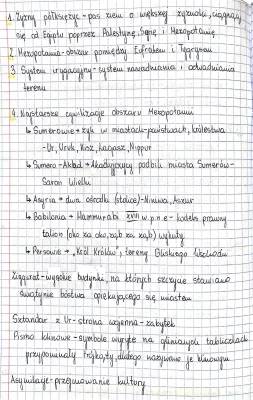 1. Żyzny półksiężyc - pas ziem o większej żyzności, ciągnący
się od Egiptu poprzez Palestynę, Syrię i Mezopotamię
2. Mezopotamia - obszar pomiędzy Eufratem i Tygrysem
3. System irygacyjny - system nawadniania i odwadniania
terenu
4. Najstarsze cywilizacje obszaru Mezopotamii
↳ Sumerowie → żyli w miastach-państwach, królestwa
- Ur, Uruk, Kisz, Lagasz, Nippur
↳ Sumero-Akkad → Akadyjczycy podbili miasta Sumerów -
Sargon Wielki
↳ Asyria → dwa ośrodki (stolice) - Niniwa, Aszur
↳ Babilonia → Hammurabi XVIII w. p.n.e - kodeks prawny
talion (oko za oko, ząb za ząb) wykuty
↳ Persowie → „Król Królów”, tereny Bliskiego Wschodu
Ziggurat - wysokie budynki, na których szczycie stawiano
świątynie bóstwa opiekującego się miastem
Sztandar z Ur - strona wojenna - zabytek
Pismo klinowe - symbole wyryte na glinianych tabliczkach
przypominały trójkąty, dlatego nazywane je klinowym
Asymilacje - przejmowanie kultury